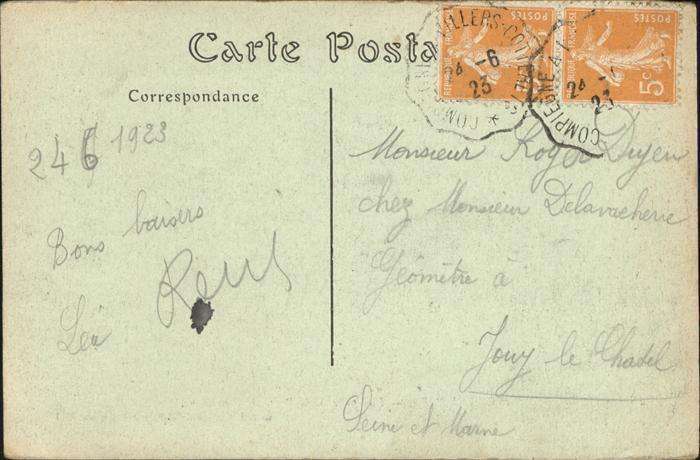 Carte Posta
Correspondance
24 6 1923
Bons baisers
René
Léa
Monsieur Roger
chez Monsieur Delavacherie
Géomètre à
Jouy le Chatel
Seine et Marne
VILLERS-COT
24 -6
23
COMPIEGNE A
24 -
23
POSTES
POSTES
5c